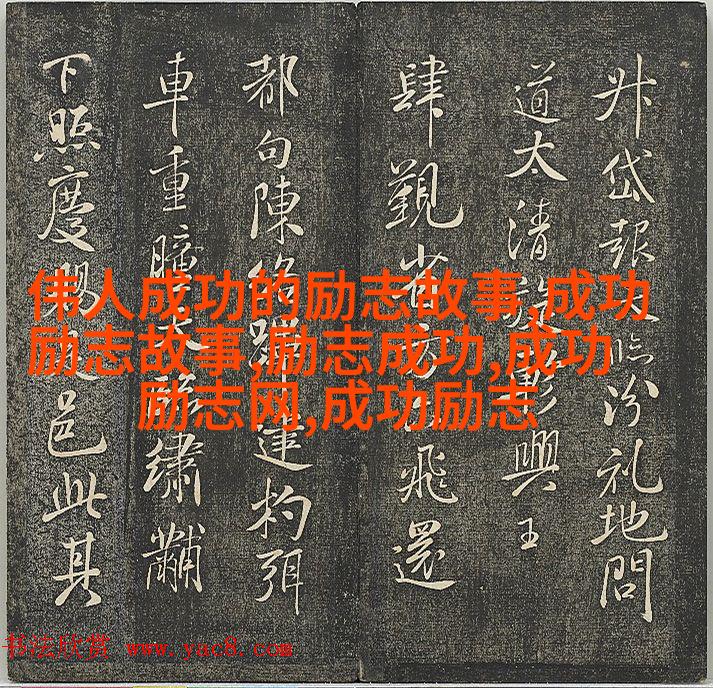 升岱報臨汾礼地問
道太清興王
肆覲省飛還
都句陳杓弭
車重瞳繡黼
下照慶邑此其
伟人成功的励志故事,成功
励志故事,励志成功,成功
励志网,成功励志
书法欣赏 www.yac8.com